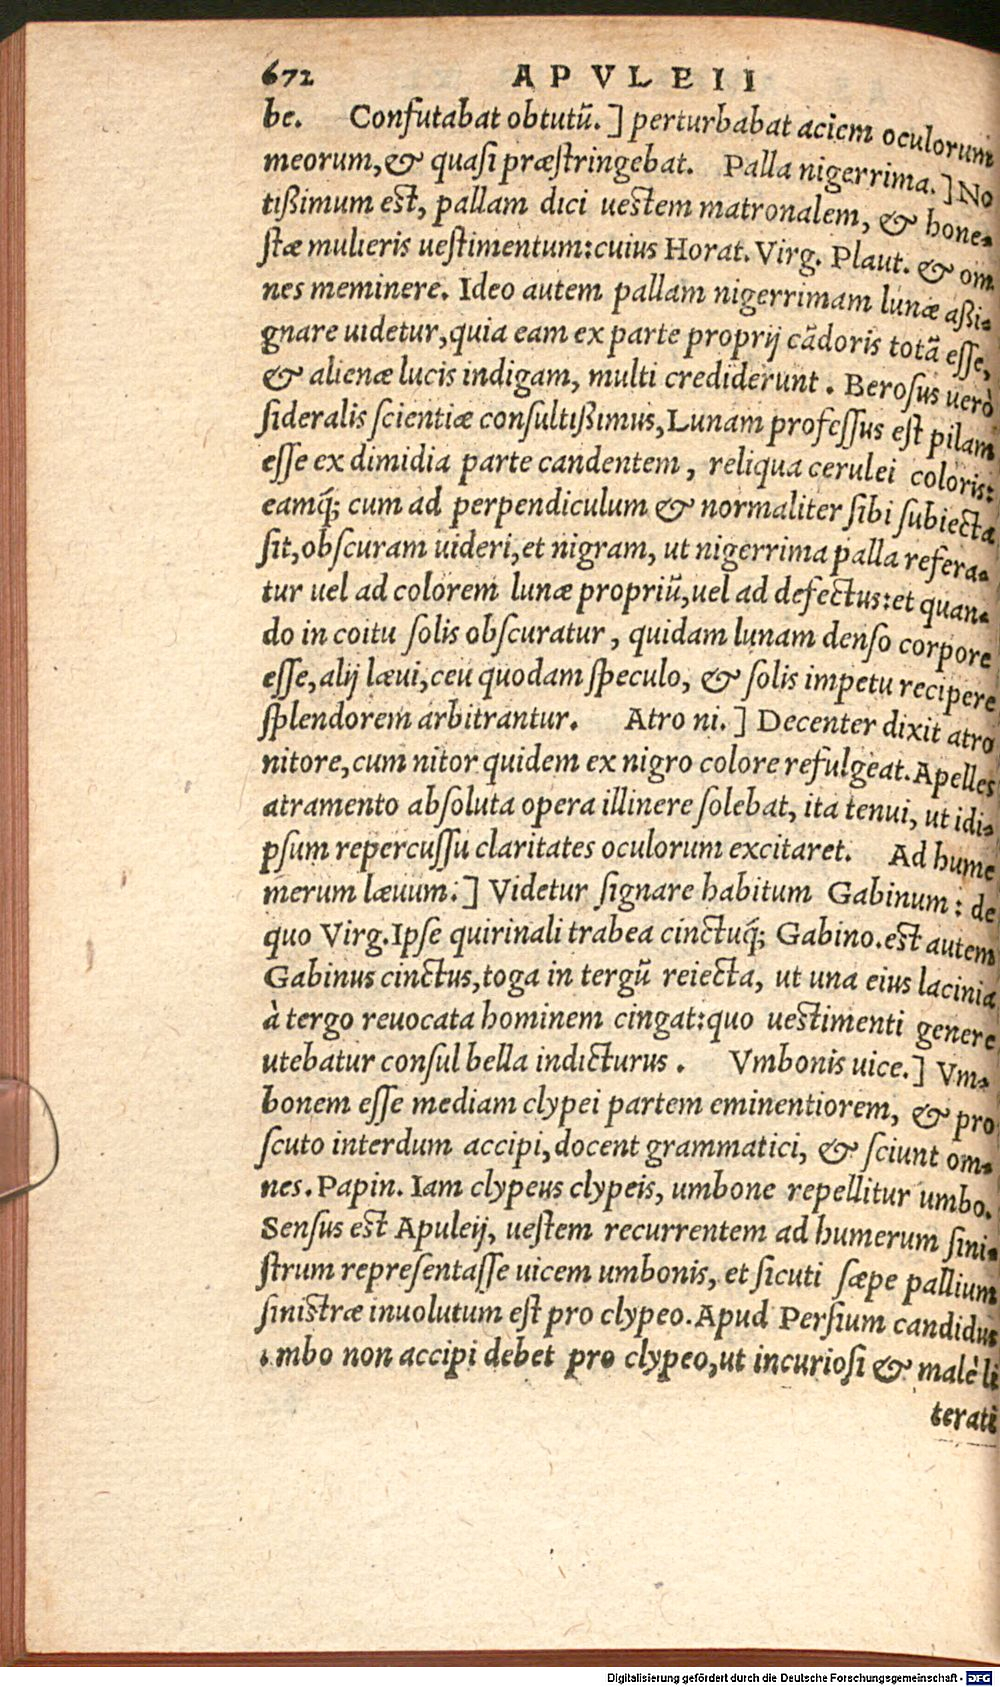 672 APVLEII
be. Confutabat obtutũ.] perturbabat aciem oculorum
meorum,& quasi præstringebat. Palla nigerrima.] No
tißimum est, pallam dici uestem matronalem, & hone-
stæ mulieris uestimentum:cuius Horat. Virg. Plaut. & om
nes meminere. Ideo autem pallam nigerrimam lunæ aßi-
gnare uidetur,quia eam ex parte proprij cãdoris totã esse,
& alienæ lucis indigam, multi crediderunt. Berosus uerò
sideralis scientiæ consultißimus,Lunam professus est pilam
esse ex dimidia parte candentem, reliqua cerulei coloris:
eamq́; cum ad perpendiculum & normaliter sibi subiecta
sit,obscuram uideri,et nigram, ut nigerrima palla refera-
tur uel ad colorem lunæ propriũ,uel ad defectus:et quan-
do in coitu solis obscuratur, quidam lunam denso corpore
esse,alij læui,ceu quodam speculo, & solis impetu recipere
splendorem arbitrantur. Atro ni.] Decenter dixit atro
nitore,cum nitor quidem ex nigro colore refulgeat.Apelles
atramento absoluta opera illinere solebat, ita tenui, ut idi-
psum repercussu claritates oculorum excitaret. Ad hume
merum læuum.] Videtur signare habitum Gabinum: de
quo Virg.Ipse quirinali trabea cinctuq́; Gabino.est autem
Gabinus cinctus,toga in tergũ reiecta, ut una eius lacinia
à tergo reuocata hominem cingat:quo uestimenti genere
utebatur consul bella indicturus. Vmbonis uice.] Vm-
bonem esse mediam clypei partem eminentiorem, & pro
scuto interdum accipi,docent grammatici, & sciunt om-
nes.Papin. Iam clypeus clypeis, umbone repellitur umbo.
Sensus est Apuleij, uestem recurrentem ad humerum sini-
strum representasse uicem umbonis, et sicuti sæpe pallium
sinistræ inuolutum est pro clypeo.Apud Persium candidus
umbo non accipi debet pro clypeo,ut incuriosi & malè li
terati
Digitalisierung gefördert durch die Deutsche Forschungsgemeinschaft - DFG